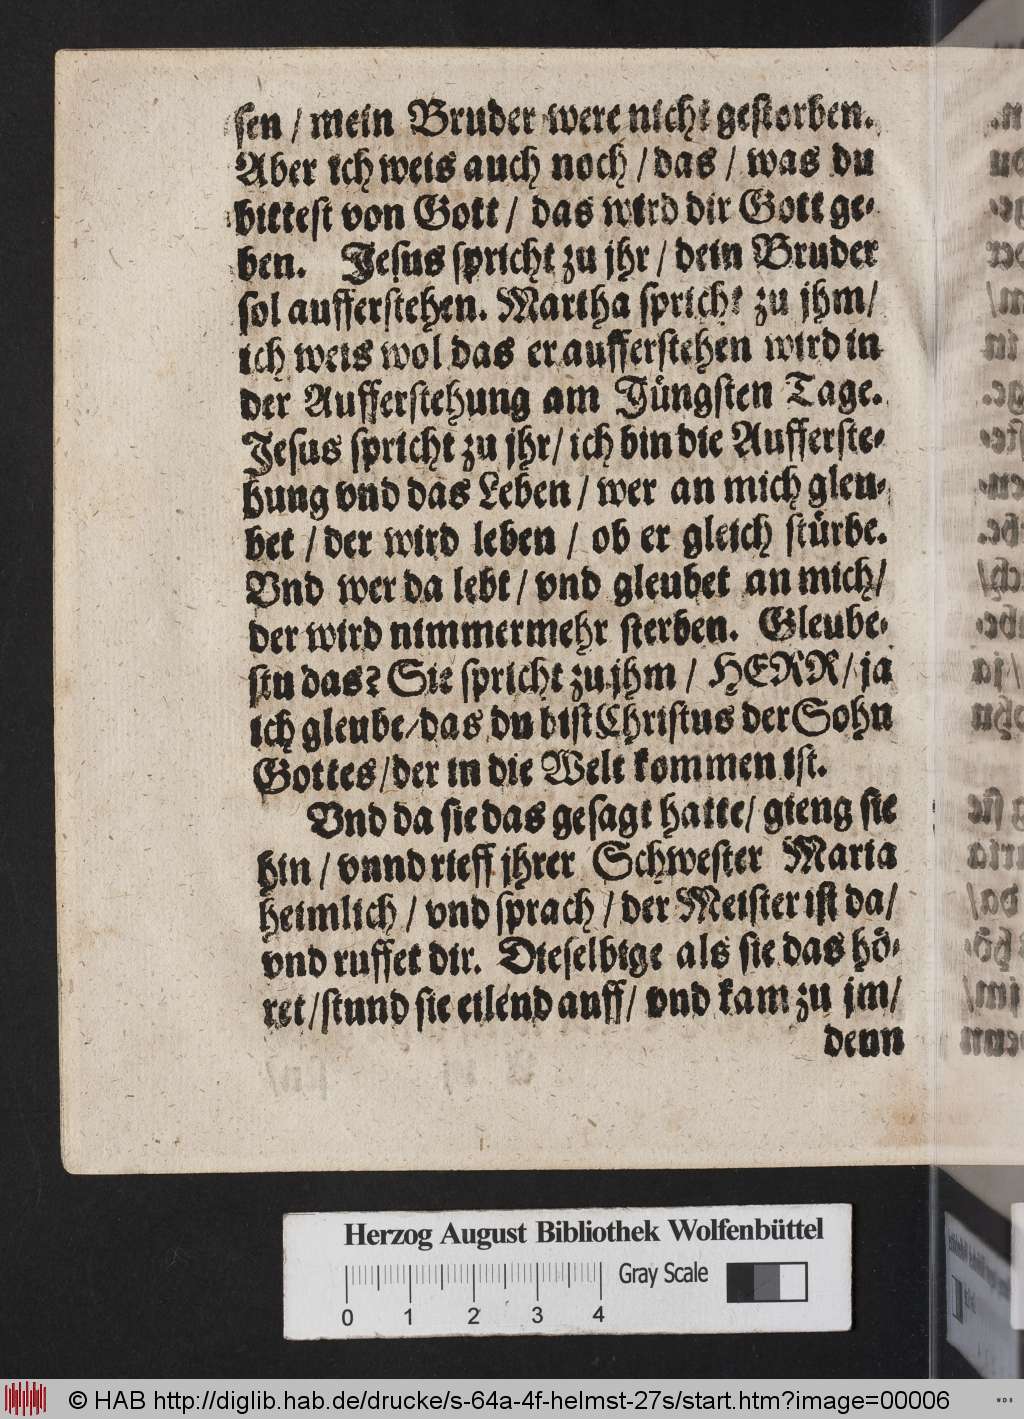 sen / mein Bruder were nicht gestorben.
Aber ich weis auch noch / das / was du
bittest von Gott / das wird dir Gott ge-
ben. Jesus spricht zu jhr / dein Bruder
sol aufferstehen. Martha spricht zu jhm/
ich weis wol das er aufferstehen wird in
der Aufferstehung am Jüngsten Tage.
Jesus spricht zu jhr/ ich bin die Aufferste-
hung vnd das Leben / wer an mich gleu-
bet / der wird leben / ob er gleich stürbe.
Vnd wer da lebt / vnd gleubet an mich/
der wird nimmermehr sterben. Gleube-
stu das? Sie spricht zu jhm / HERR/ ja
ich gleube/das du bist Christus der Sohn
Gottes/der in die Welt kommen ist.
Vnd da sie das gesagt hatte/ gieng sie
hin / vnnd rieff jhrer Schwester Maria
heimlich / vnd sprach / der Meister ist da/
vnd ruffet dir. Dieselbige als sie das hö-
ret /stund sie eilend auff/ vnd kam zu jm/
denn
Herzog August Bibliothek Wolfenbüttel
Gray Scale
0 1 2 3 4
© HAB http://diglib.hab.de/drucke/s-64a-4f-helmst-27s/start.htm?image=00006